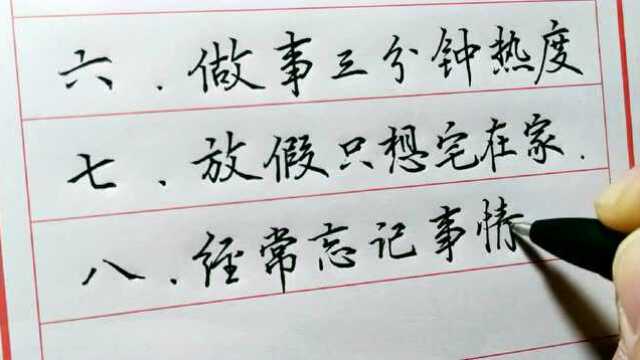 六．做事三分钟热度
七．放假只想宅在家．
八．经常忘记事情